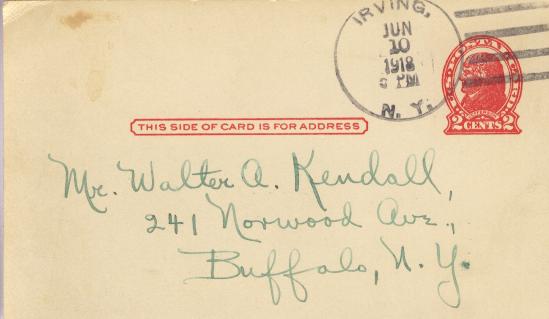 IRVING,
JUN
10
1918
PM
N. Y.
U·S·POSTAGE
2 CENTS 2
THIS SIDE OF CARD IS FOR ADDRESS
Mr. Walter A. Kendall,
241 Norwood Ave.,
Buffalo, N. Y.